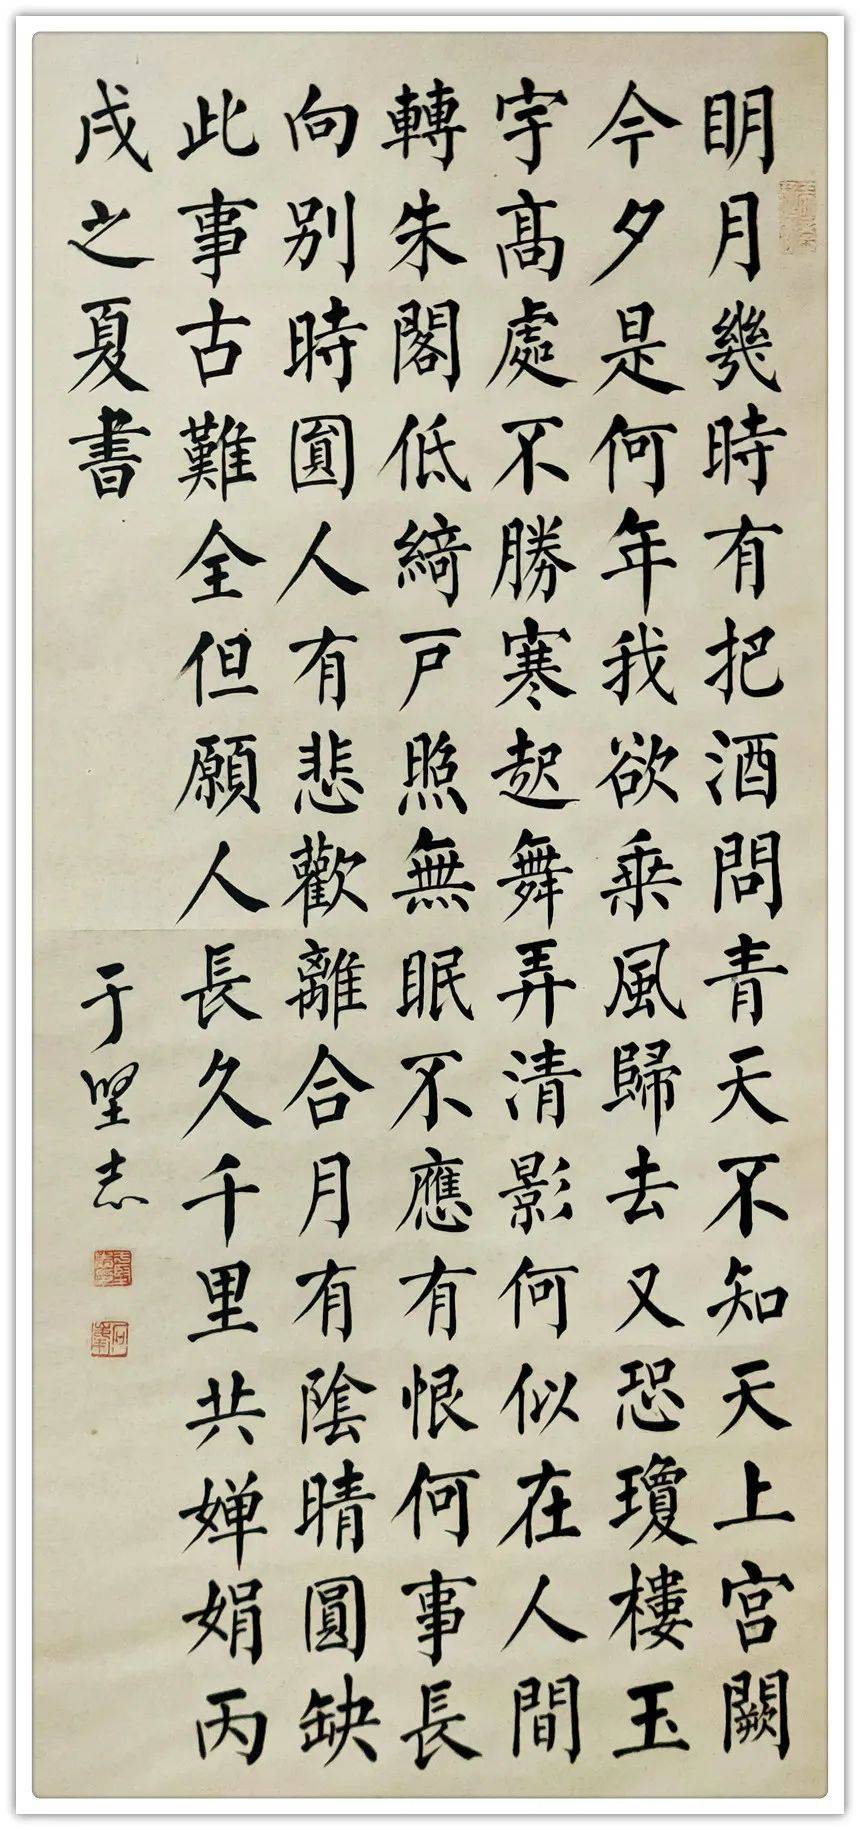 眀月幾時有把酒問青天不知天上宮闕
今夕是何年我欲乘風歸去又恐瓊樓玉
宇髙處不勝寒起舞弄清影何似在人間
轉朱閣低綺户照無眠不應有恨何事長
向别時圓人有悲歡離合月有陰晴圓缺
此事古難全但願人長久千里共嬋娟丙
戌之夏書
于堅志